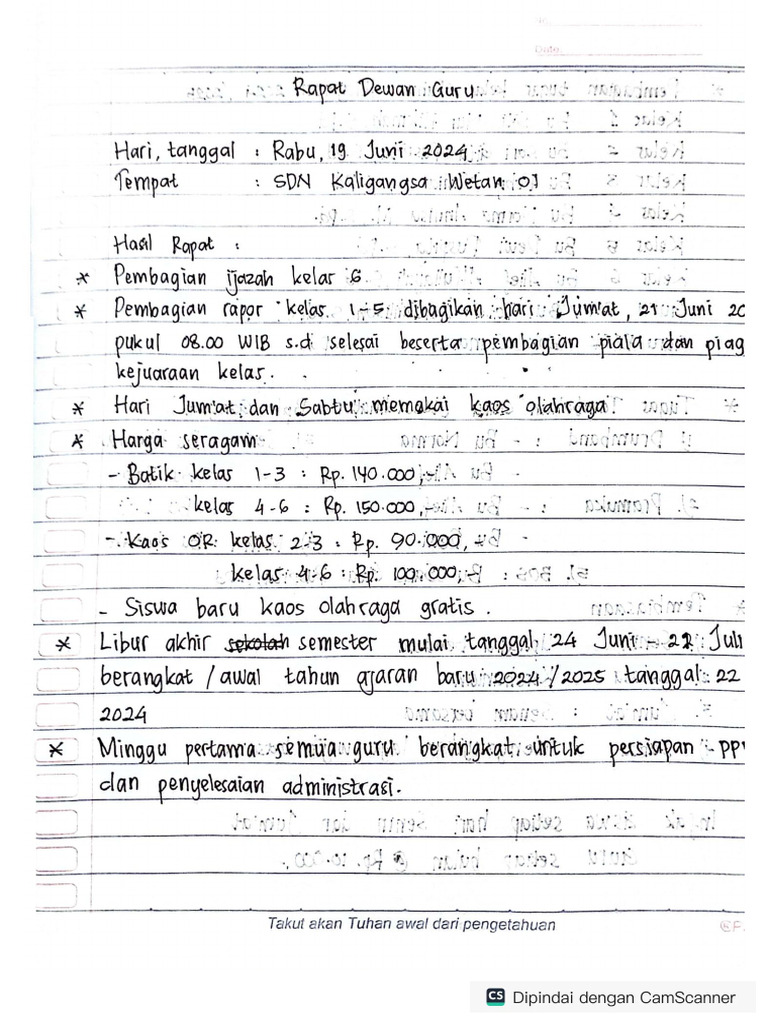 No.
Date.
Rapat Dewan Guru
Hari, tanggal : Rabu, 19 Juni 2024
Tempat : SDN Kaligangsa Wetan 01
Hasil Rapat :
* Pembagian ijazah kelas 6
* Pembagian rapor kelas 1-5 dibagikan hari Jum'at, 21 Juni 20
pukul 08.00 WIB s.d selesai beserta pembagian piala dan piag
kejuaraan kelas.
* Hari Jum'at dan Sabtu memakai kaos olahraga
* Harga seragam
- Batik kelas 1-3 : Rp. 140.000,-
kelas 4-6 : Rp. 150.000,-
- Kaos OR kelas 2-3 : Rp. 90.000,-
kelas 4-6 : Rp. 100.000,-
- Siswa baru kaos olahraga gratis.
* Libur akhir sekolah semester mulai tanggal 24 Juni - Juli
berangkat / awal tahun ajaran baru 2024/2025 tanggal 22
2024
* Minggu pertama semua guru berangkat untuk persiapan
dan penyelesaian administrasi.
Takut akan Tuhan awal dari pengetahuan
CS Dipindai dengan CamScanner